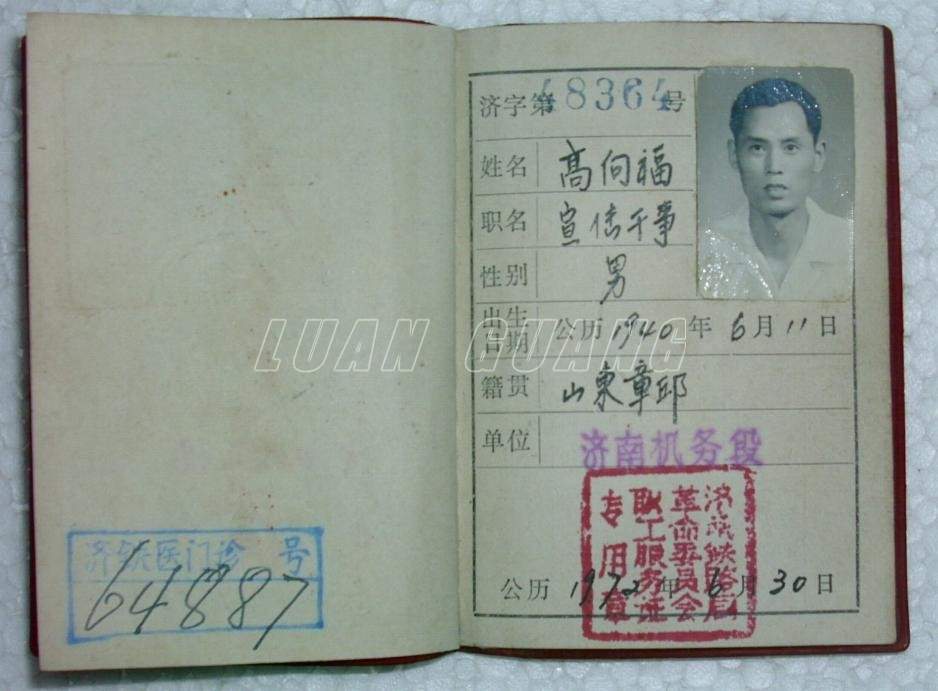 济铁医门诊 号
64887
济字第48364号
姓名 高向福
职名 宣传干事
性别 男
出生日期 公历1940年6月11日
籍贯 山东章邱
单位 济南机务段
济南铁路局
革命委员会
职工服务证
专用章
公历1972年6月30日
LUAN GUANG